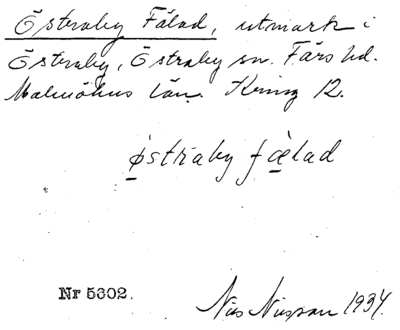 Östraby Fälad, utmark i
Östraby, Östraby sn. Färs hd.
Malmöhus län. Kring 12.
ö̀straby fæ̀lad
Nr 5602.
Nils Nilsson 1934.